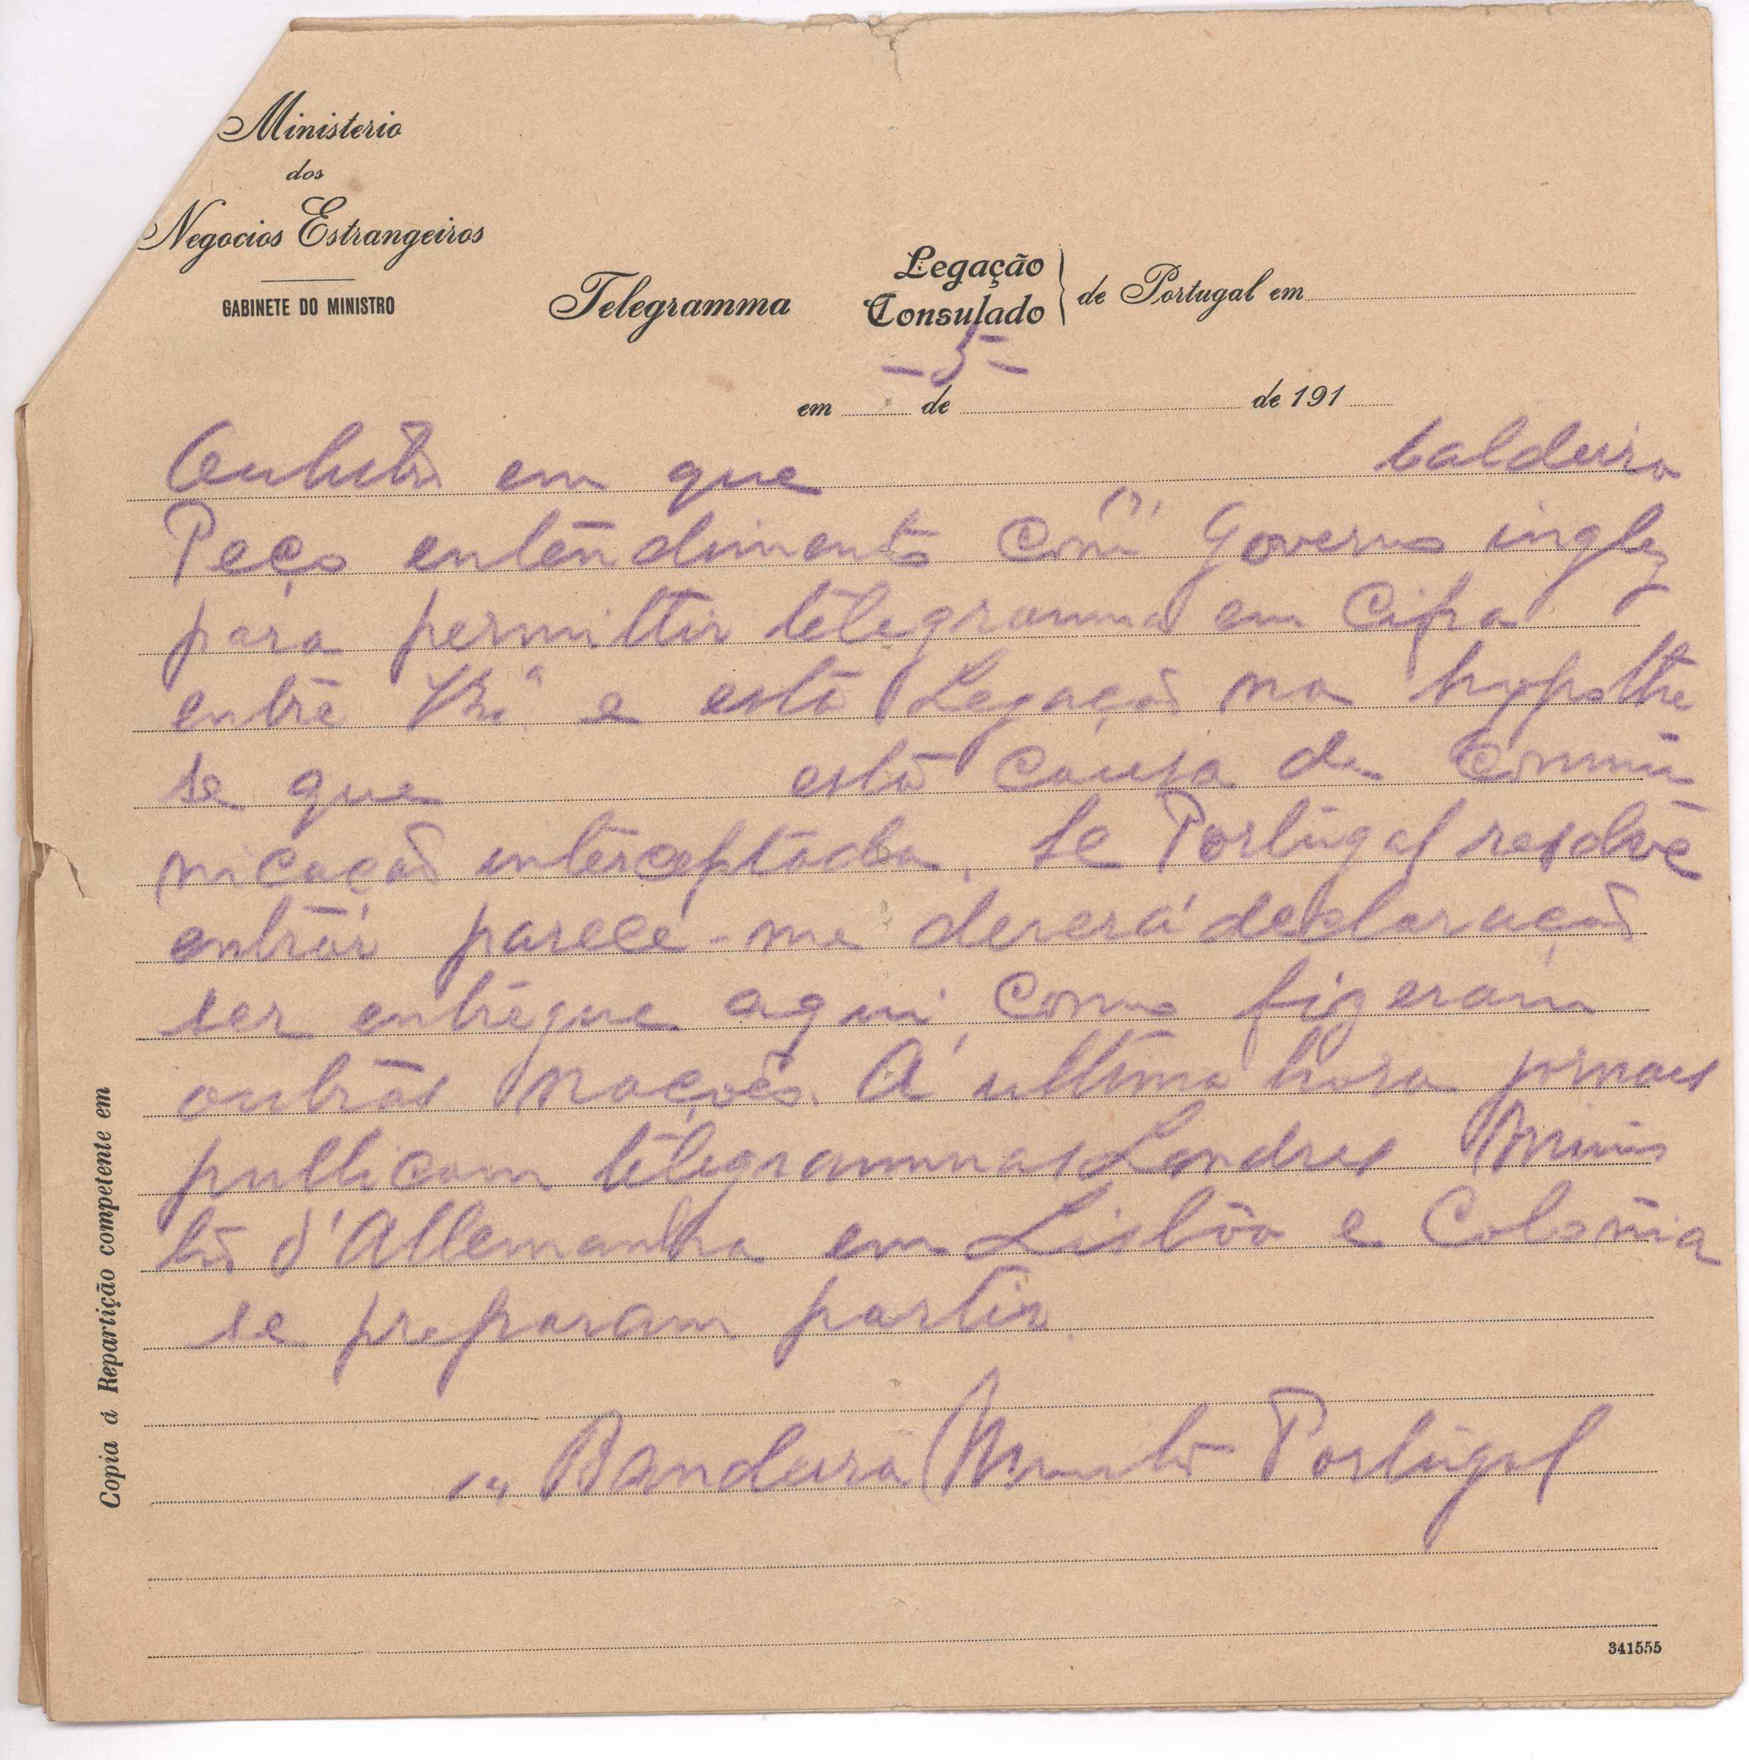 Ministerio
dos
Negocios Estrangeiros
GABINETE DO MINISTRO
Telegramma
Legação
Consulado
de Portugal em
- 5 -
em de de 191
em que Caldeira
Peço entendimento com Governo inglez
para permittir telegramma em Cifra
entre V. Ex.ª e esta Legação na hypothe
se que esta causa de commu
nicação interceptada. Se Portugal resolve
entrar parece-me deverá declaração
ser entregue aqui como fizeram
outras nações. Á ultima hora jornaes
publicam telegrammas Londres Minis
tro d'Allemanha em Lisbôa e Colonia
se preparam partir.
Bandeira Ministro Portugal
Copia á Repartição competente em
341555